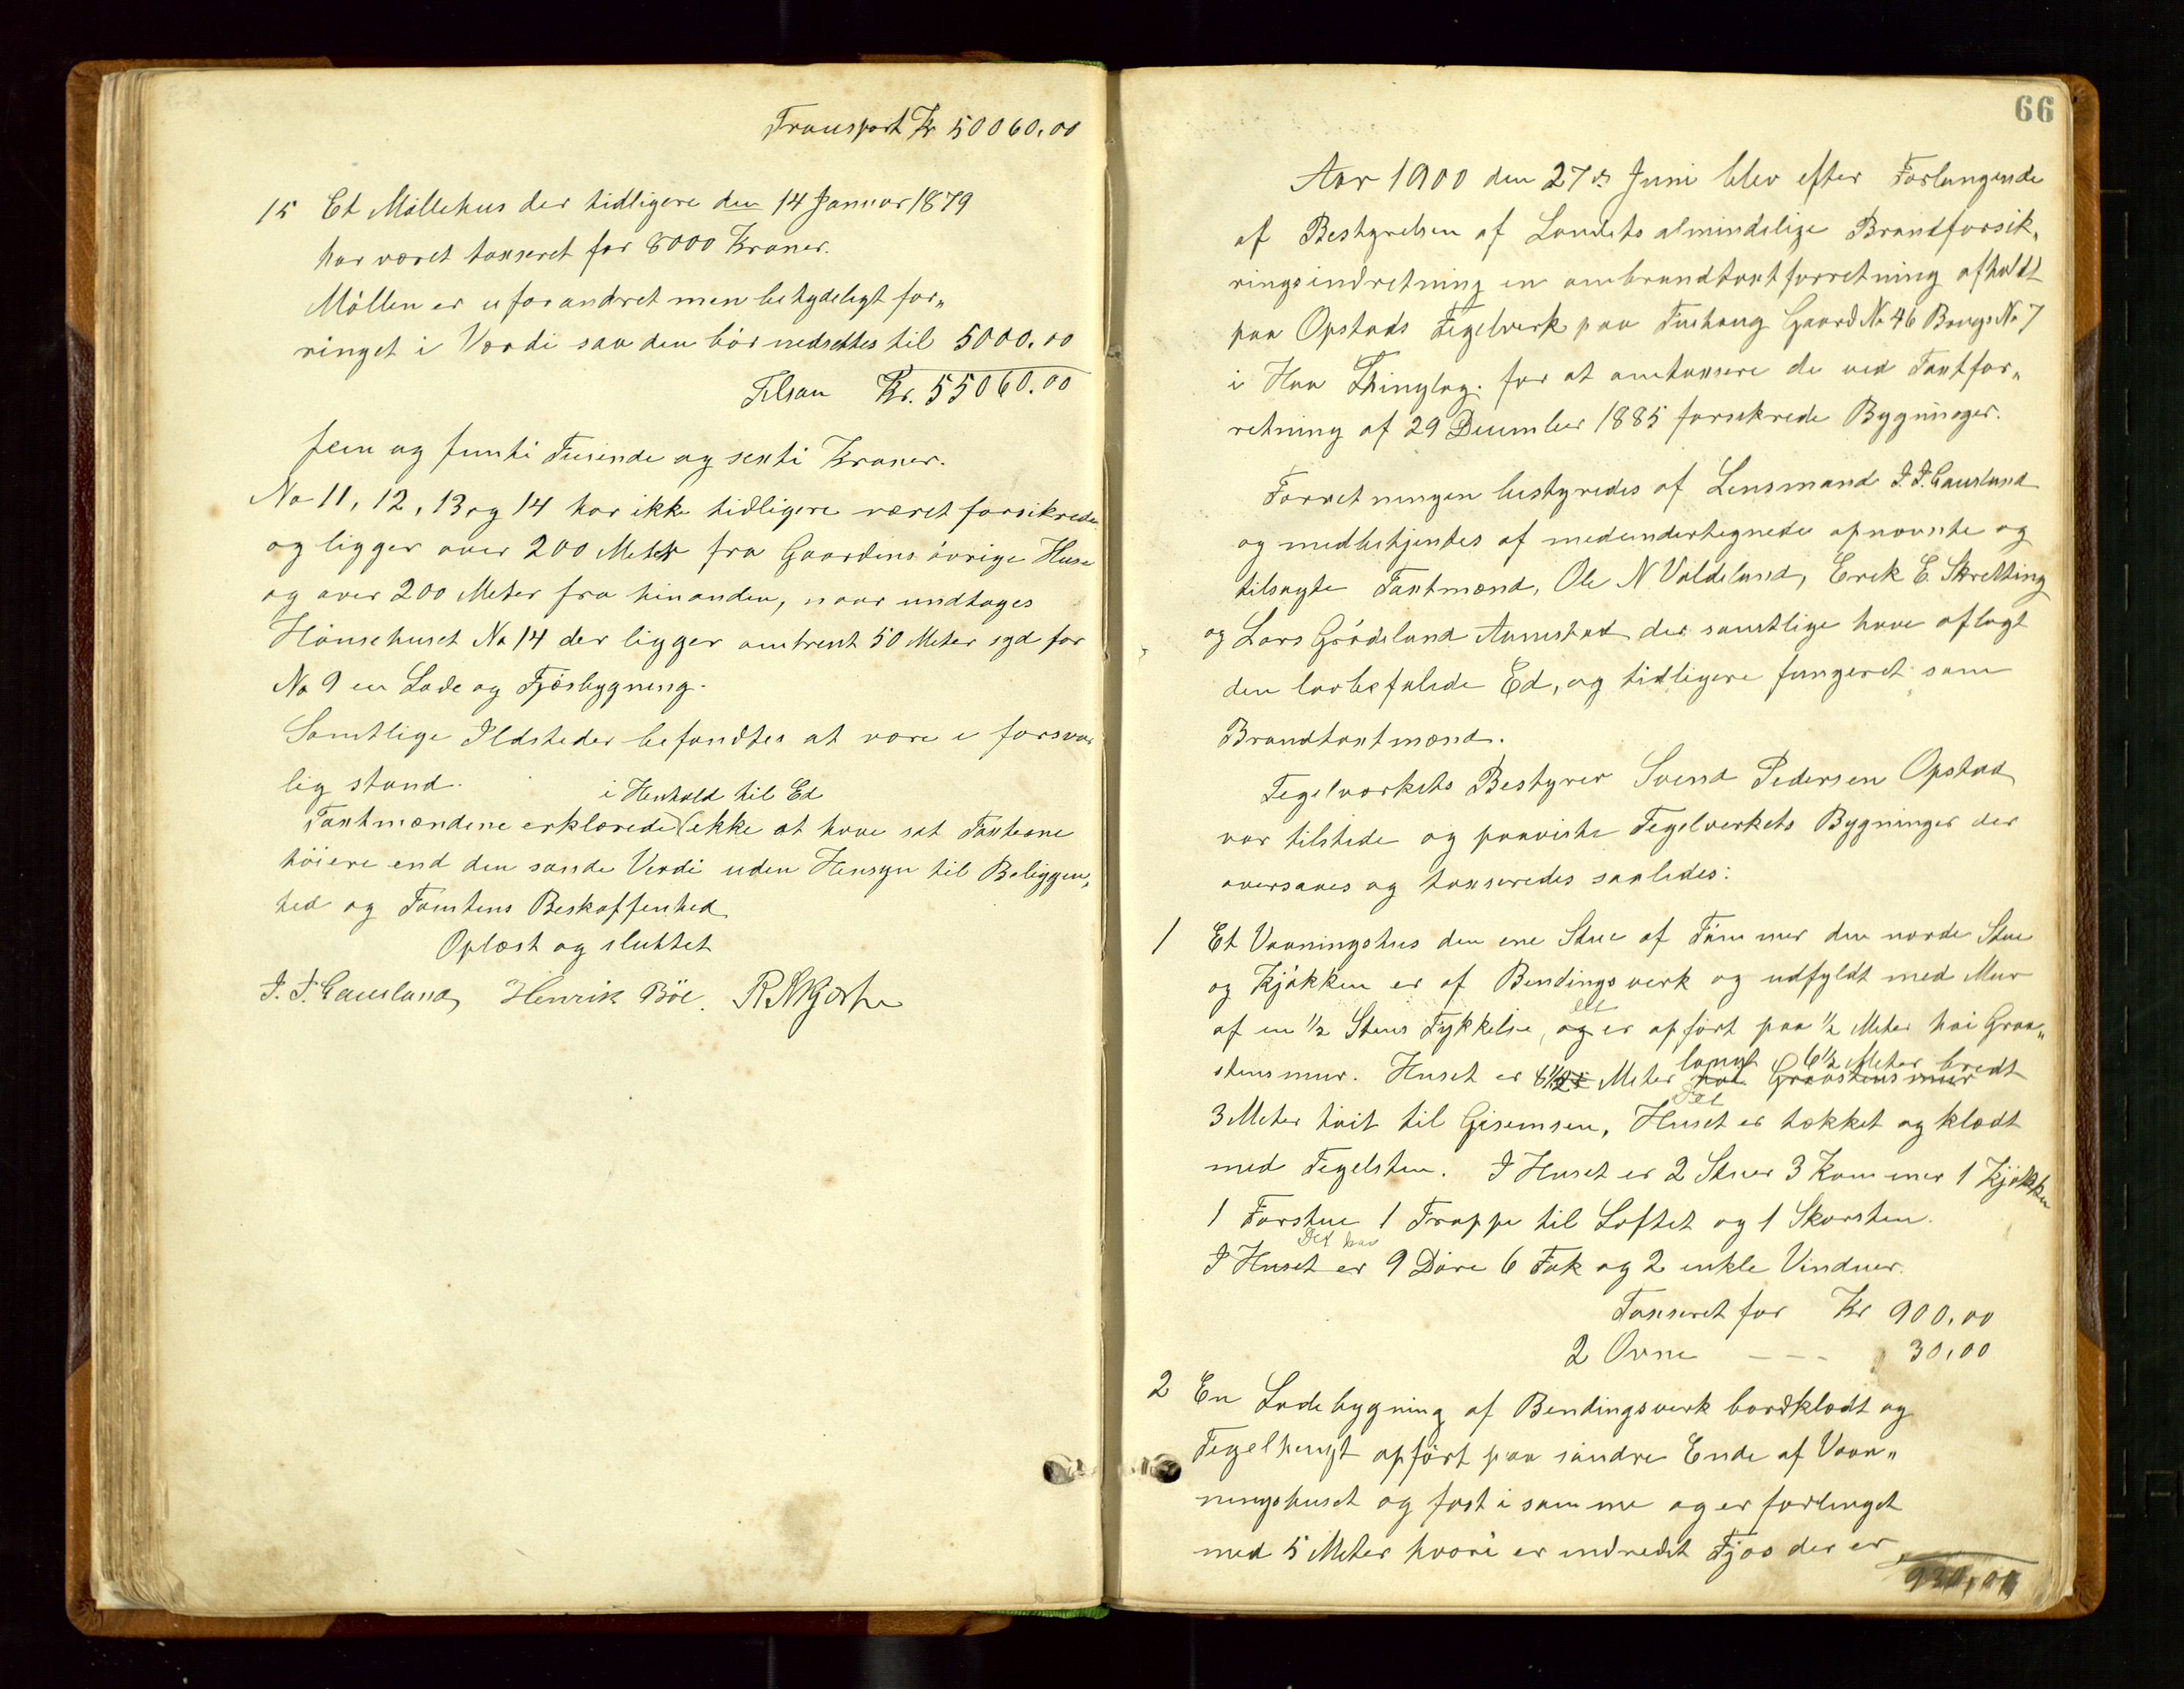 Transport Kr 50060.00
15 Et Möllehus der tidligere den 14 Januar 1879
har været taxseret for 8000 Kroner.
Möllen er uforandret men betydeligt for„
ringet i Værdi saa den bör nedsettes til 5000.00
Tilsam Kr. 55060.00
fem og femti Tusinde og sexti Kroner.
No 11, 12, 13 og 14 har ikke tidligere været forsikrede
og ligger over 200 Meter fra Gaardens övrige Huse
og over 200 Meter fra hinanden, naar undtages
Hönsehuset No 14 der ligger omtrent 50 Meter syd for
No 9 en Lade og Fjösbygning.
Samtlige Ildsteder befandtes at være i forsvar
lig stand.
i Henhold til Ed
Taxtmændene erklærede ikke at have sat Taxterne
höiere end den sande Verdi uden Hensyn til Beliggen„
hed og Tomtens Beskaffenhed
Oplæst og sluttet
J. T. Gausland Henrik Böe.
66
Aar 1900 den 27de Juni blev efter Forlangende
af Bestyrelsen af Landets almindelige Brandforsik„
ringsindretning en ombrandtaxtforretning afholdt
paa Opstads Tegelverk paa Tuehaug Gaard No 46 Brugs No 7
i Haa Thinglag. for at omtaxsere de ved Taxtfor„
retning af 29 December 1885 forsikrede Bygninger.
Forretningen bestyredes af Lensmand J. T. Gausland
og medbetjentes af medundertegnede opnævnte og
tilsagte Taxtmænd, Ole N Valdeland, Erik E. Skretting
og Lars Grödeland Aunestad der samtlige have aflagt
den lovbefalede Ed, og tidligere fungeret som
Brandtaxtmænd.
Tegelværkets Bestyrer Svend Pedersen Opstad
var tilstede og paaviste Tegelverkets Bygninger der
oversaaes og taxseredes saaledes:
1 Et Vaaningshus den ene Stue af Tömmer den nordre Stue
og Kjökken er af Bendingsverk og udfyldt med Mur
af en 1/2 Stens Tykkelse, og er opfört paa 1/2 Meter höi Graa„
langt 6 1/2 Meter bredt
stensmur. Huset er 8 1/2 Meter höi Graastensmur
Det
3 Meter höit til Gisemsen, Huset er tækket og klædt
med Tegelsten. I Huset er 2 Stuer 3 Kammer 1 Kjökken
1 Forstue 1 Trappe til Loftet og 1 Skorsten.
Det har
I Huset er 9 Döre 6 Fak og 2 enkle Vinduer.
Taxseret for Kr 900.00
2 Ovne — — — 30.00
2 En Ladebygning af Bendingsverk bordklædt og
Tegelhengt opfört paa söndre Ende af Vaan„
ningshuset og fast i samme og er forlenget
med 5 Meter hvori er indredet Fjös der er
930,00